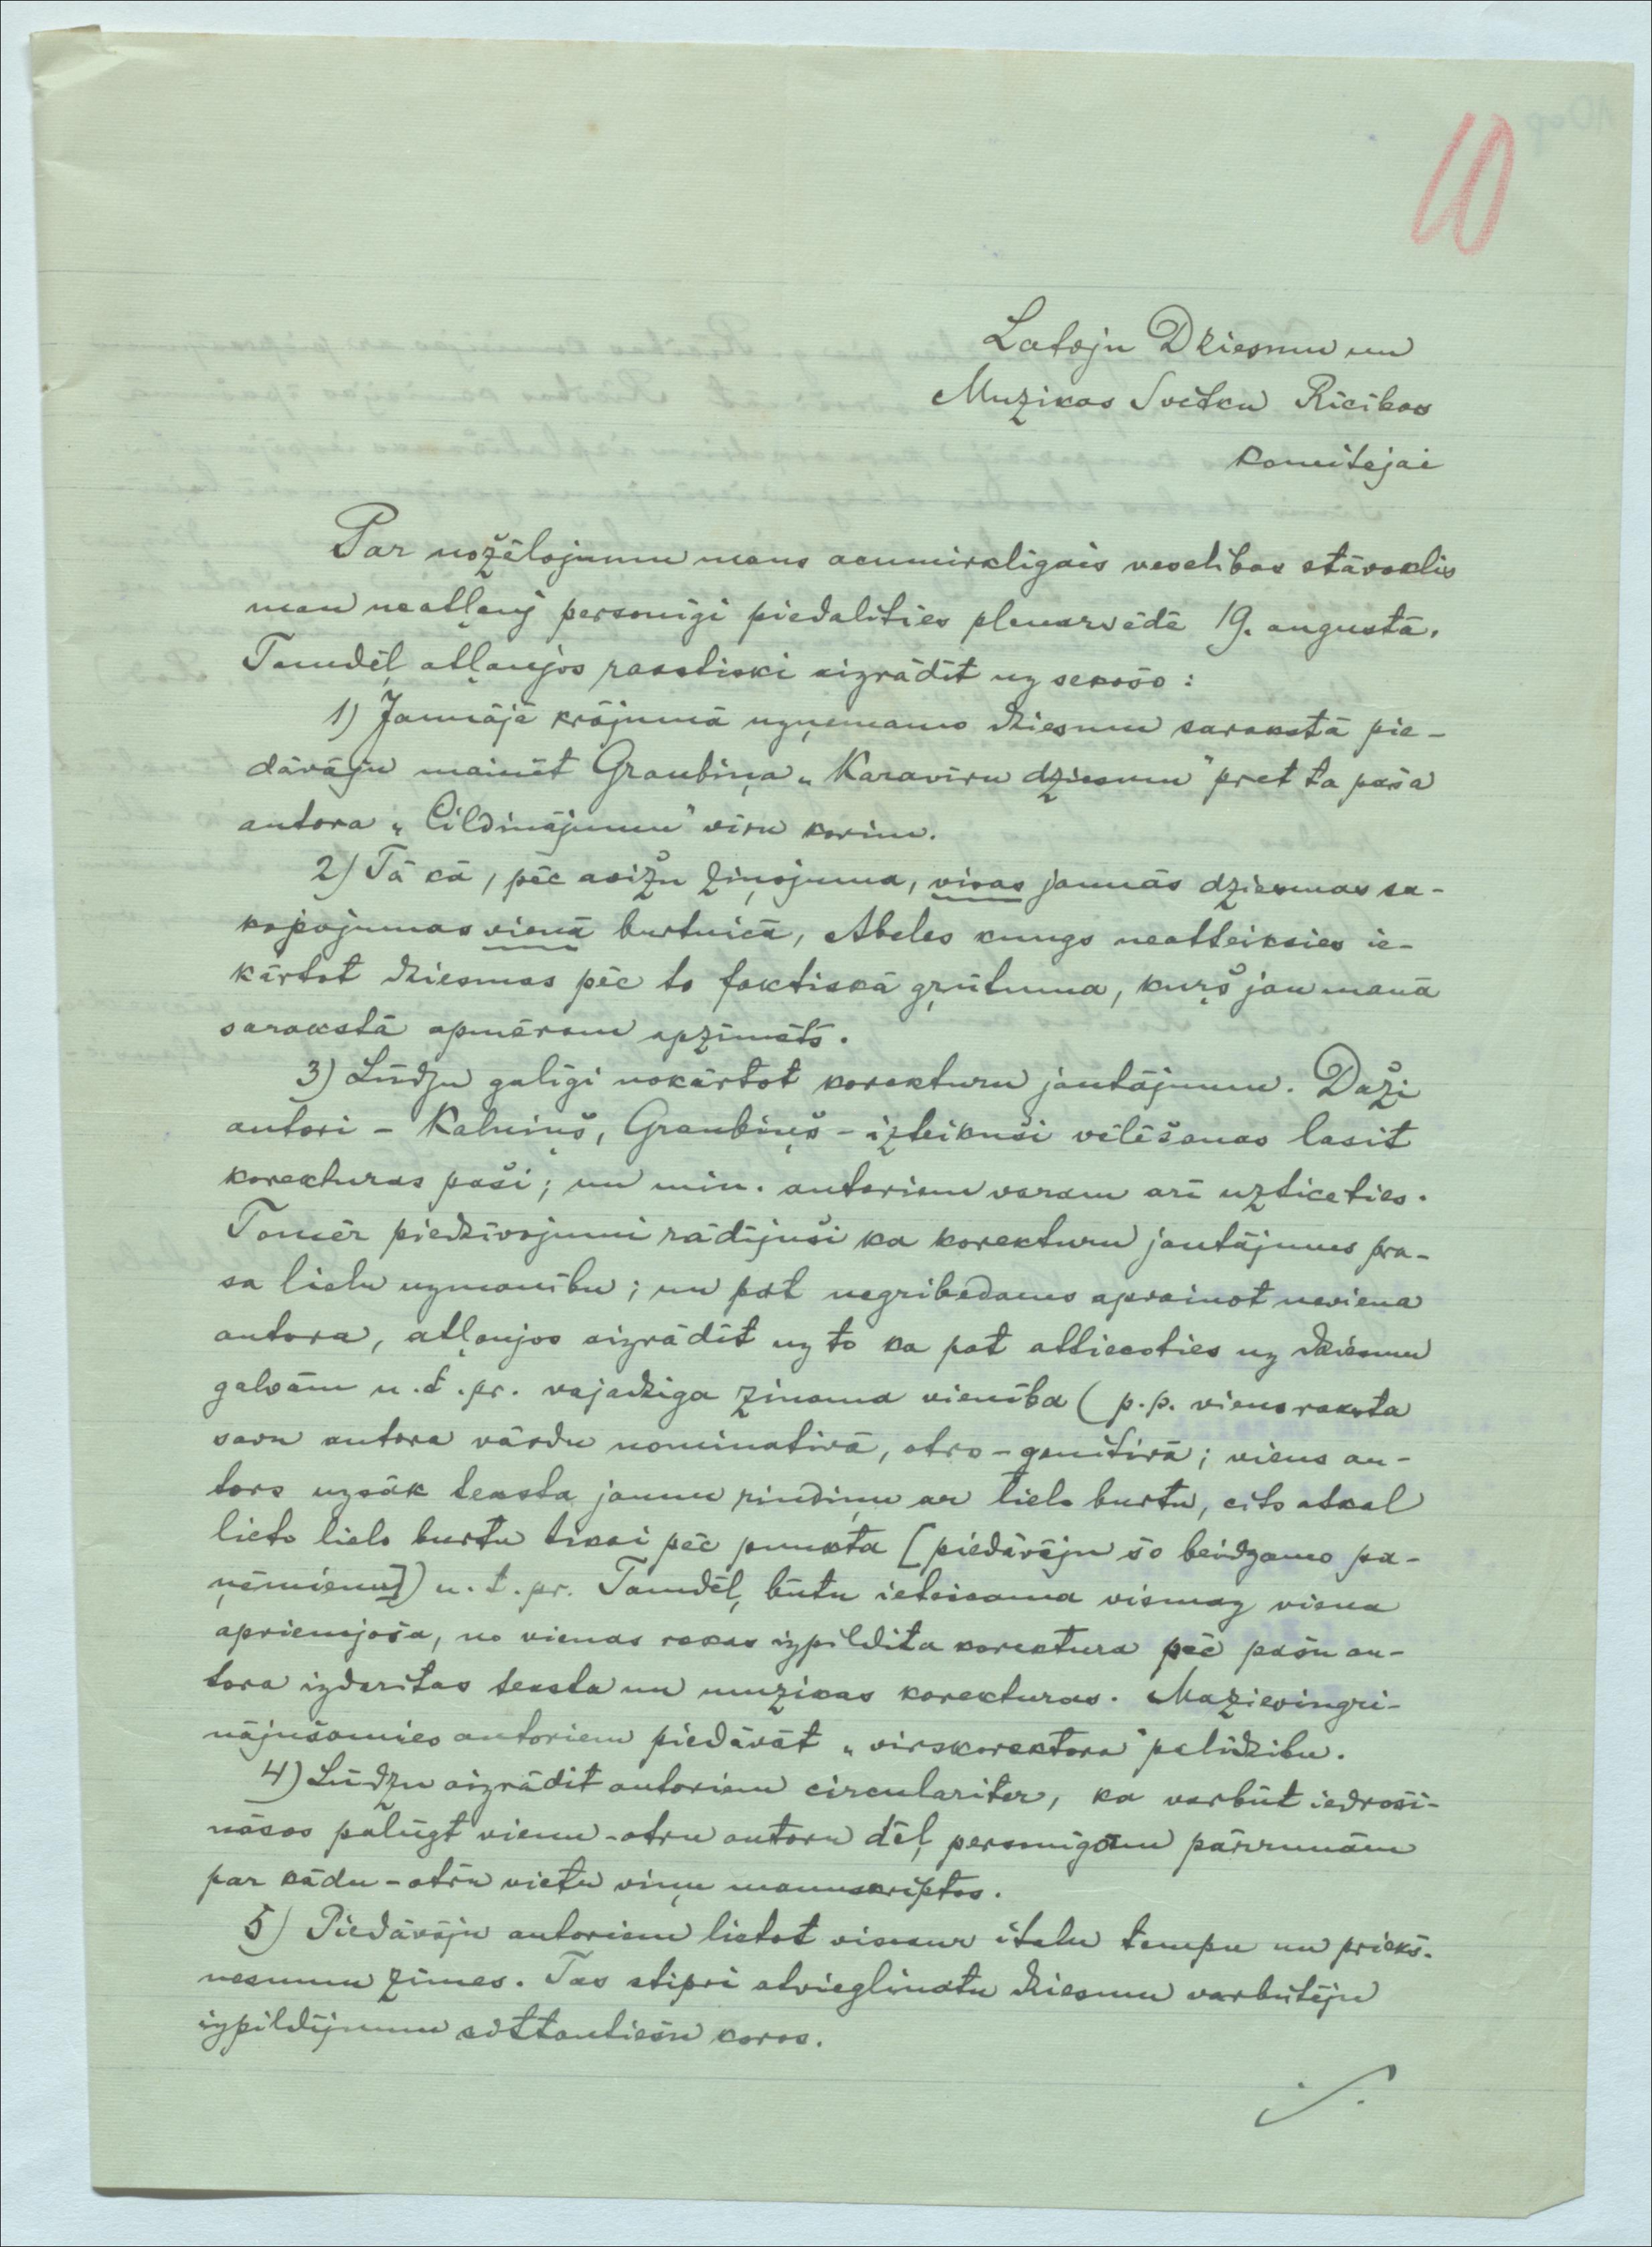 10
Latvju Dziesmu un
Muzikas Svētku Rīcības
komitejai
Par nožēlojumu mans acumirkligais veselības stāvoklis
man neatļauj personīgi piedalīties plenarsēdē 19. augustā.
Tamdēļ atļaujos rakstiski aizrādīt uz sekošo:
1) Jaunājā krājumā uzņemamo dziesmu sarakstā pie-
dāvāju mainīt Graubiņa „Karavīru dziesmu" pret ta paša
autora „Cildinājumu" vīru korim.
2) Tā kā, pēc avižu ziņojuma, visas jaunās dziesmas sa-
kopojumas vienā burtnicā, Abeles kungs neatteiksies ie-
kārtot dziesmas pēc to faktiskā grūtuma, kuŗš jau manā
sarakstā apmēram apzīmēts.
3) Lūdzu galīgi nokārtot korekturu jautājumu. Daži
autori - Kalniņš, Graubiņš - izteikuši vēlēšanos lasīt
korekturas paši; un min. autoriem varam arī uzticeties.
Tomēr piedzīvojumi rādījuši ka korekturu jautājums pra-
sa lielu uzmanību; un pat negribēdams apvainot neviena
autora, atļaujos aizrādīt uz to ka pat attiecoties uz dziesmu
galvām u.t.pr. vajadziga zinama vienība (p.p. viens raksta
savu autora vārdu nominativā, otrs - genitivā; viens au-
tors uzsāk teksta jaunu rindiņu ar lielo burtu, cits atkal
lieto lielo burtu tikai pēc punkta [piedāvāju šo beidzamo pa-
ņēmienu]) u.t.pr. Tamdēļ būtu ieteicama vismaz viena
apriemjoša, no vienas rokas izpildita korektura pēc pašu au-
tora izdarītas teksta un muzikas korekturas. Mazievingri-
nājušamies autoriem piedāvāt „virskorektora" palīdzibu.
4) Lūdzu aizrādīt autoriem circulariter, ka varbūt iedroši-
nāšos palūgt vienu-otru autoru dēļ personīgām pārrunām
par kādu-otru vietu viņu manuskriptos.
5) Piedāvāju autoriem lietot visur italu tempu un priekš-
nesumu zīmes. Tas stipri atvieglinatu dziesmu varbutēju
izpildījumu sīttautiešu koros.